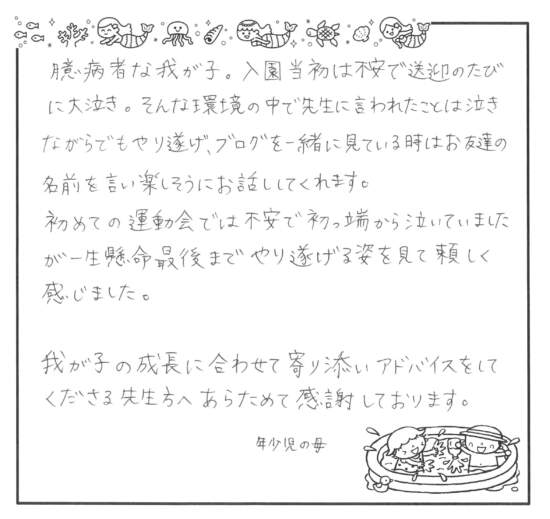 臆病者な我が子。入園当初は不安で送迎のたび
に大泣き。そんな環境の中で先生に言われたことは泣き
ながらでもやり遂げ、ブログを一緒に見ている時はお友達の
名前を言い楽しそうにお話ししてくれます。
初めての運動会では不安で初っ端から泣いていました
が一生懸命最後までやり遂げる姿を見て頼しく
感じました。
我が子の成長に合わせて寄り添いアドバイスをして
くださる先生方へあらためて感謝しております。
年少児の母